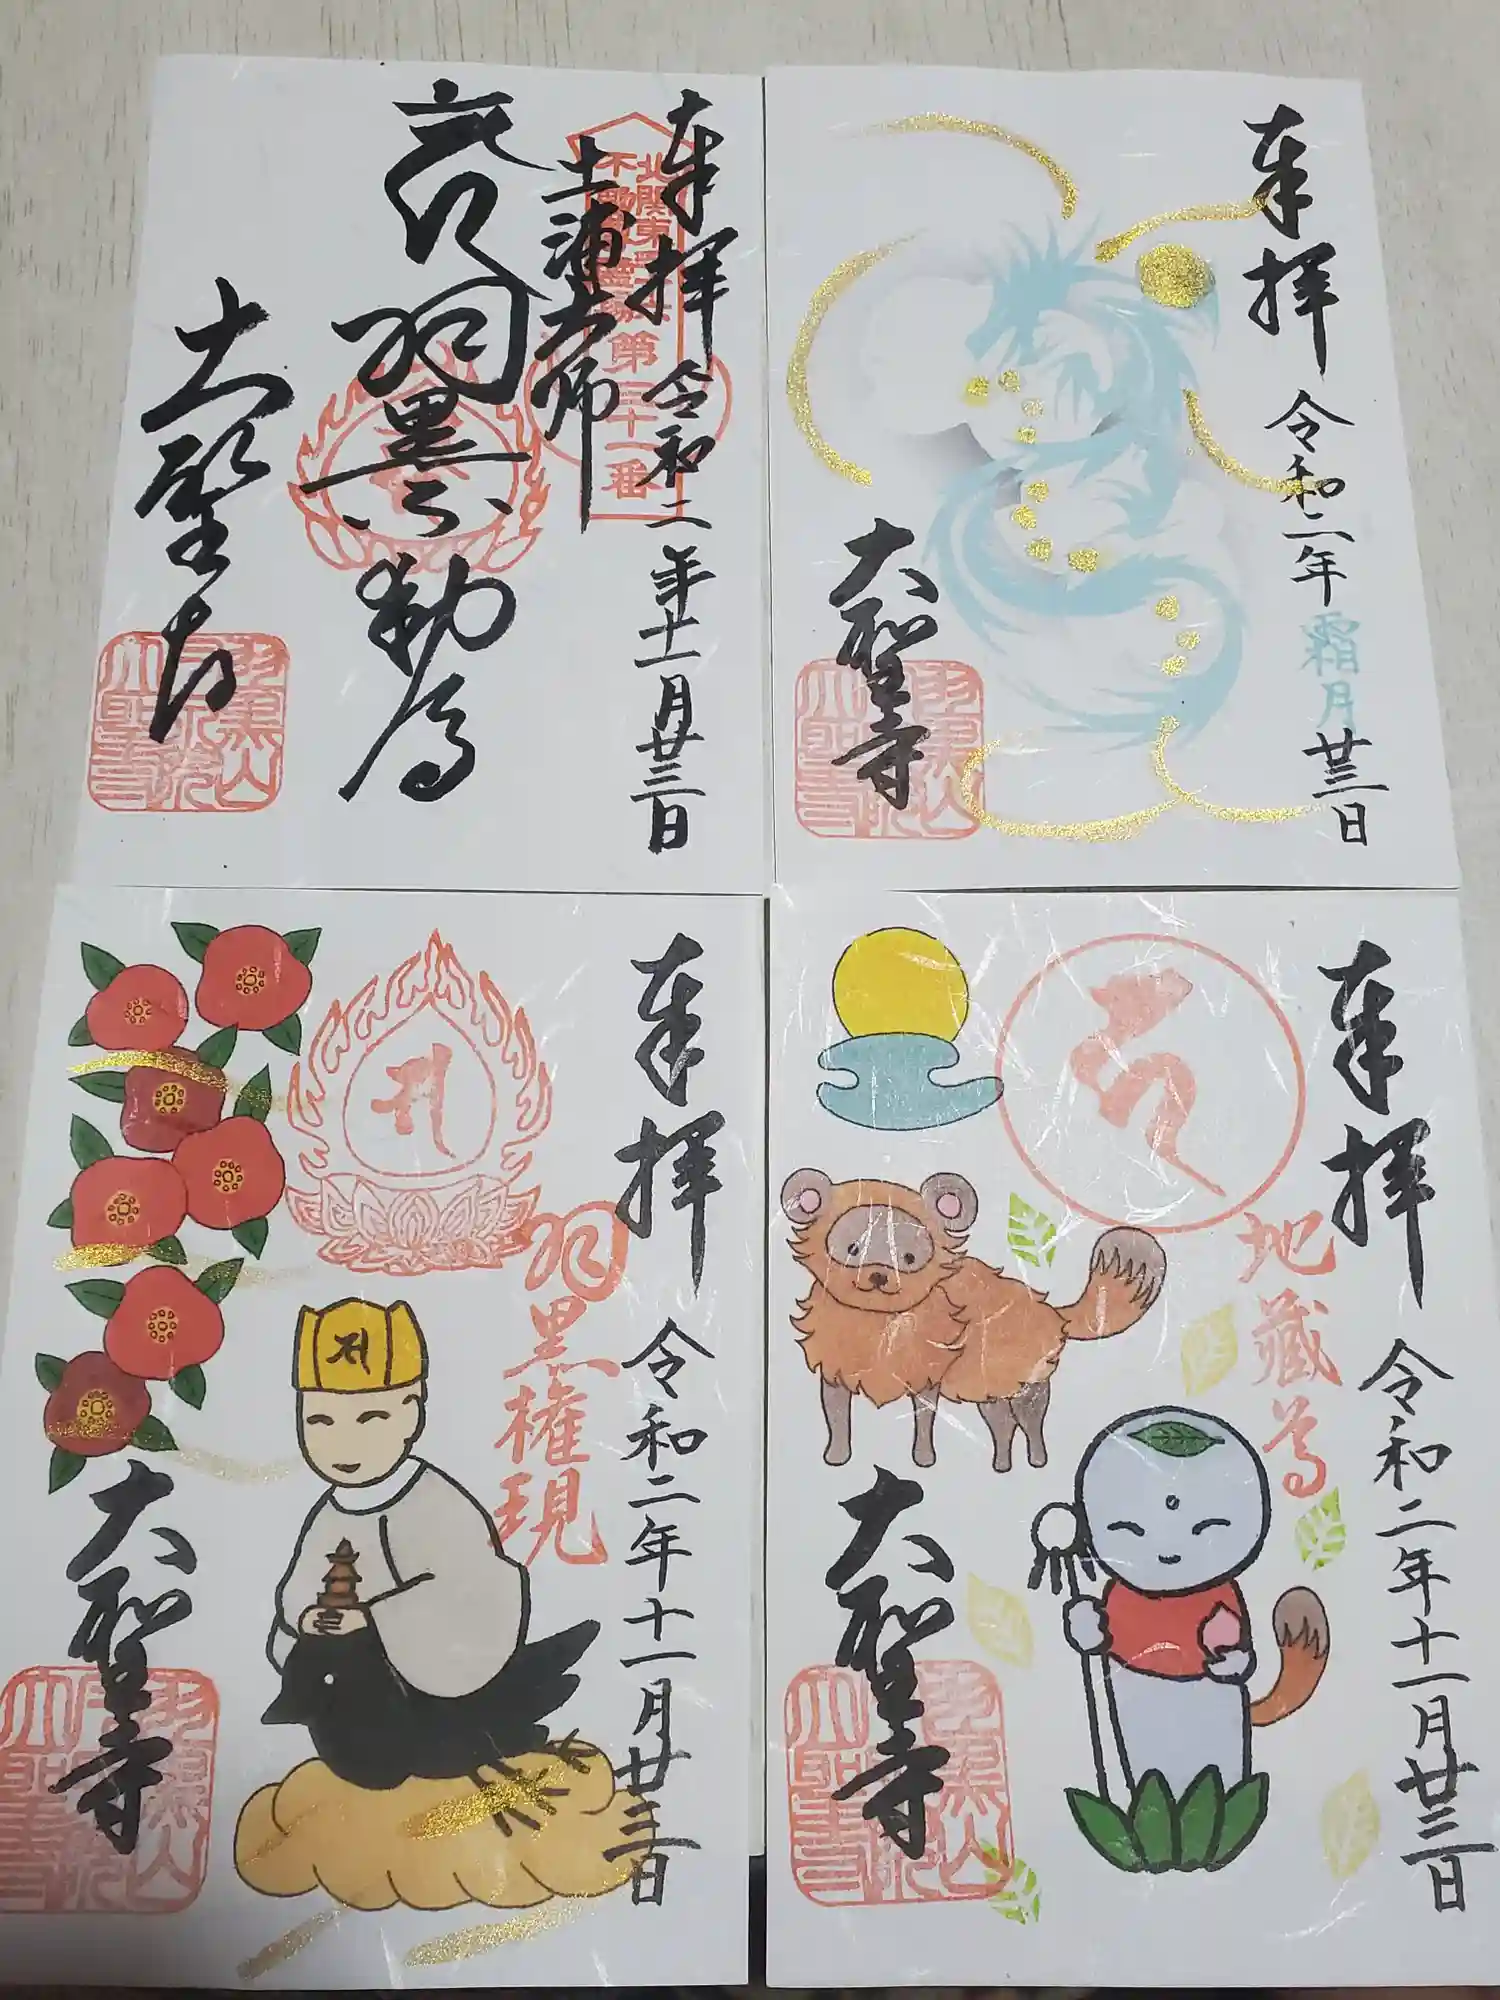 奉拝
令和二年十一月廿三日
土浦大師
北関東三十六
不動尊霊場
第三十一番
羽黒不動尊
大聖寺
奉拝
令和二年霜月廿三日
大聖寺
奉拝
令和二年十一月廿三日
羽黒権現
大聖寺
奉拝
令和二年十一月廿三日
地蔵尊
大聖寺